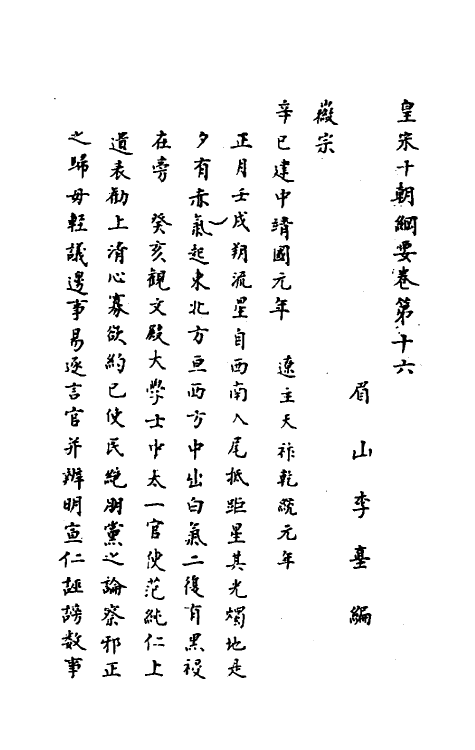 皇宋十朝綱要卷第十六
眉山李𡌴編
徽宗
辛巳建中靖國元年　遼主天祚乾統元年
正月壬戌朔流星自西南入尾抵距星其光燭地是
夕有赤氣起東北方亘西方中出白氣二復有黑祲
在旁　癸亥觀文殿大學士中太一宫使范純仁上
遺表勸上清心寡欲約己便民絶朋黨之論察邪正
之歸毋輕議邊事易逐言官并辨明宣仁誣謗數事